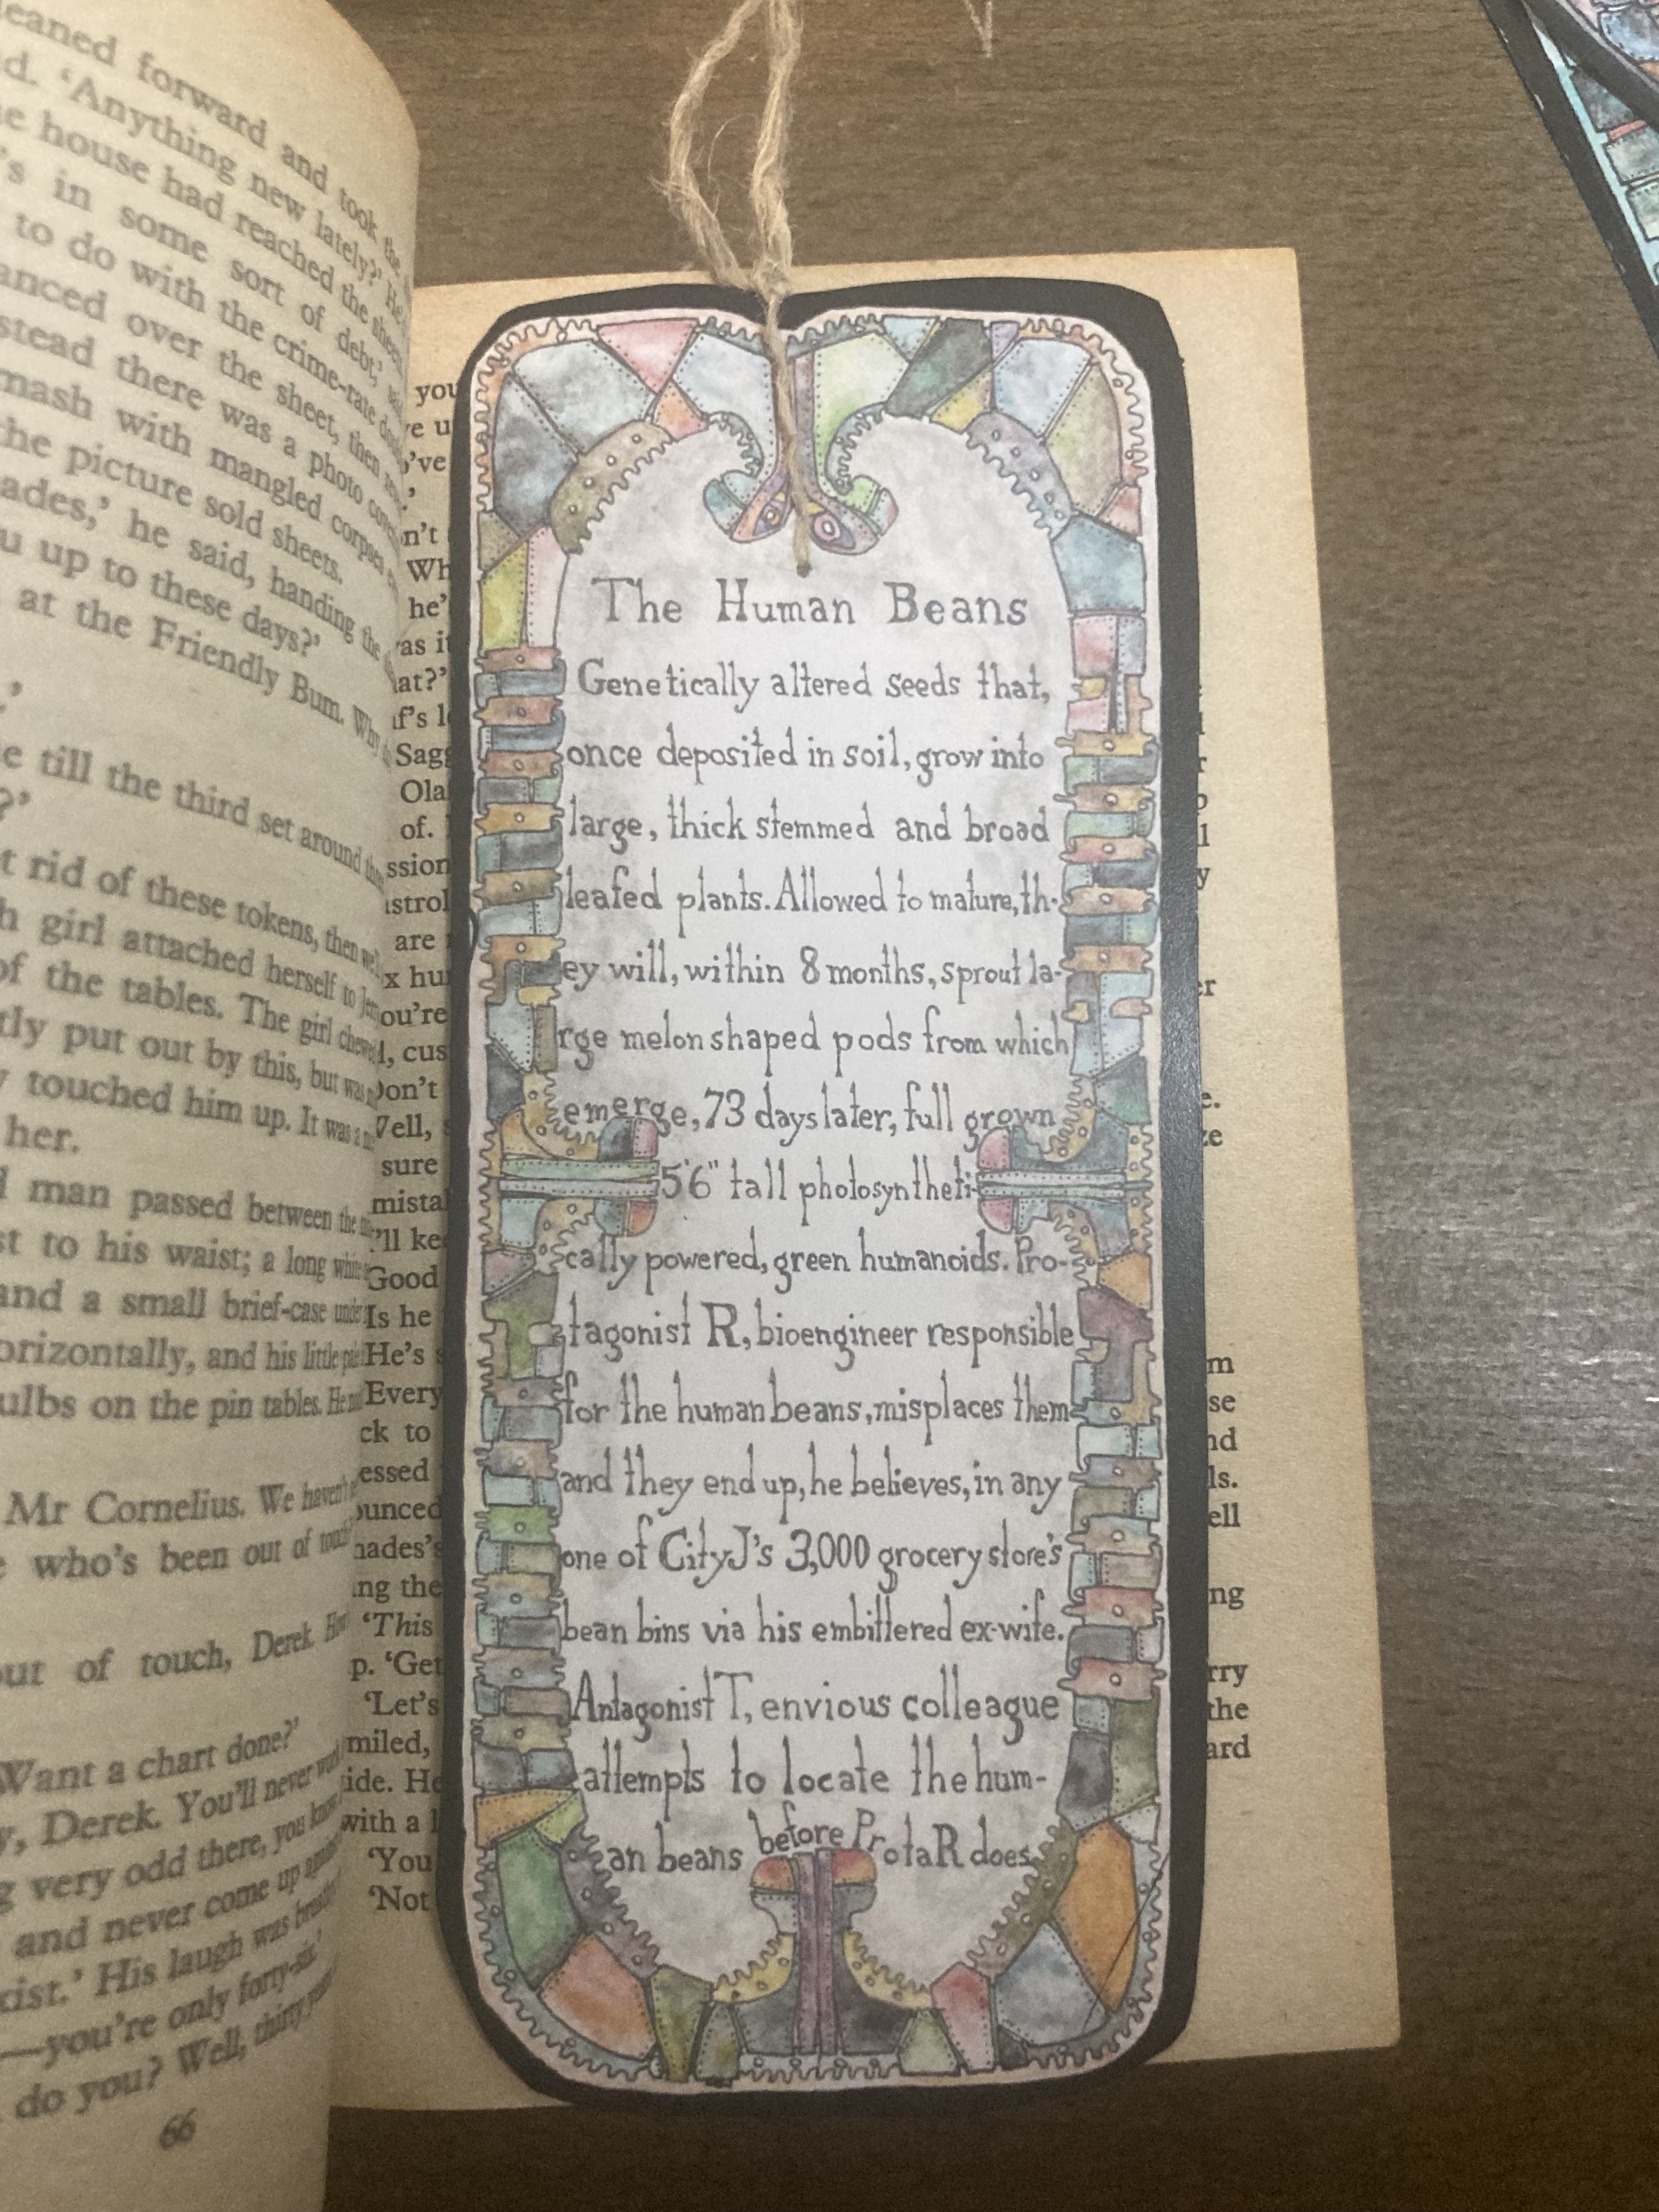 eaned forward and took the
d. ‘Anything new lately?’ He
e house had reached the
’s in some sort of debt,’
to do with the crime-rate
anced over the sheet, then
stead there was a photo
mash with mangled corpses
the picture sold sheets.
ades,’ he said, handing the
u up to these days?’
at the Friendly Bum. Why
.’
e till the third set around
?’
t rid of these tokens, then
h girl attached herself to
of the tables. The girl
tly put out by this, but was
y touched him up. It was a
her.
d man passed between the
st to his waist; a long
and a small brief-case
orizontally, and his little
ulbs on the pin tables. He
Mr Cornelius. We haven’t
e who’s been out of touch
out of touch, Derek.
Want a chart done?’
y, Derek. You’ll never
g very odd there, you know
and never come up
xist.’ His laugh was
—you’re only forty-six.’
do you? Well, thirty
66
you
ve u
’ve
’
n’t
Wh
he’
as it
at?’
f’s l
Sagg
Ola
of.
ssion
astrol
are
x hu
ou’re
l, cus
Don’t
Well,
sure
mista
’ll ke
Good
Is he
He’s
Every
ck to
essed
ounced
hades’s
ng the
‘This
p. ‘Get
‘Let’s
miled,
ide. He
with a l
‘You
‘Not
The Human Beans
Genetically altered seeds that,
once deposited in soil, grow into
large, thick stemmed and broad
leafed plants. Allowed to mature, th-
ey will, within 8 months, sprout la-
rge melon shaped pods from which
emerge, 73 days later, full grown
5'6" tall photosyntheti-
cally powered, green humanoids. Pro-
tagonist R, bioengineer responsible
for the human beans, misplaces them
and they end up, he believes, in any
one of City J's 3,000 grocery store's
bean bins via his embittered ex-wife.
Antagonist T, envious colleague
attempts to locate the hum-
an beans before Prota R does.
y
er
e.
ze
m
se
nd
ls.
ell
ng
rry
the
ard